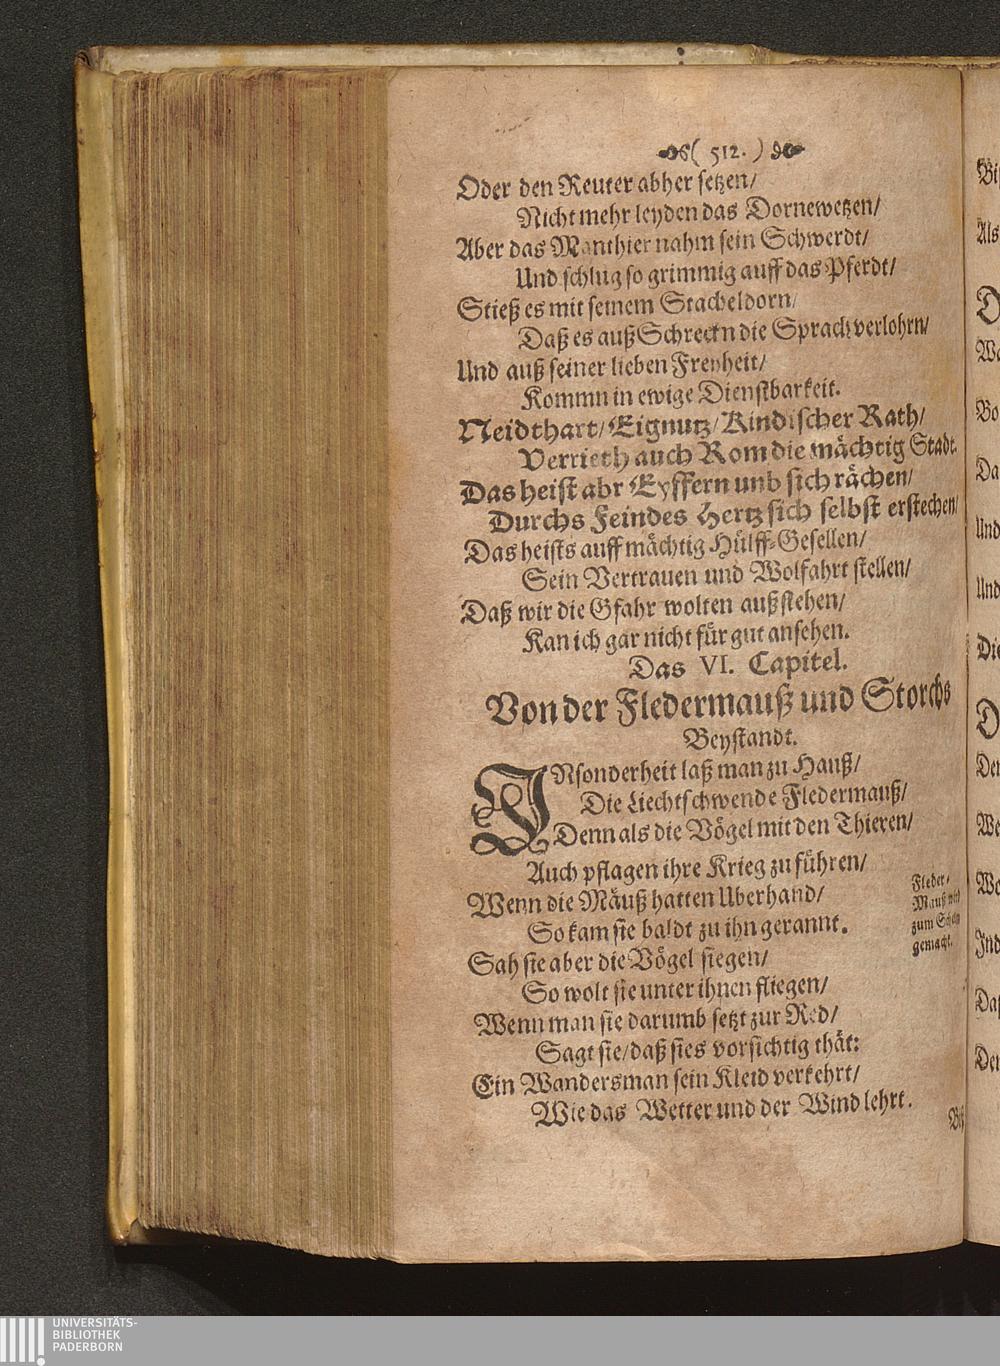 ( 512. )
Oder den Reuter abher setzen/
Nicht mehr leyden das Dornewetzen/
Aber das Manthier nahm sein Schwerdt/
Und schlug so grimmig auff das Pferdt/
Stieß es mit seinem Stacheldorn/
Daß es auß Schreckn die Sprach verlohrn/
Und auß seiner lieben Freyheit/
Kommn in ewige Dienstbarkeit.
Neidthart/ Eignutz/ Kindischer Rath/
Verrieth auch Rom die mächtig Stadt.
Das heist abr Eyffern unb sich rächen/
Durchs Feindes Hertz sich selbst erstechen/
Das heists auff mächtig Hülff-Gesellen/
Sein Vertrauen und Wolfahrt stellen/
Daß wir die Gfahr wolten außstehen/
Kan ich gar nicht für gut ansehen.
Das VI. Capitel.
Von der Fledermauß und Storchs
Beystandt.
INsonderheit laß man zu Hauß/
Die Liechtschwende Fledermauß/
Denn als die Vögel mit den Thieren/
Auch pflagen ihre Krieg zu führen/
Wenn die Mäuß hatten Uberhand/
So kam sie baldt zu ihn gerannt.
Fleder-
Mauß wird
zum Schelm
gemacht.
Sah sie aber die Vögel siegen/
So wolt sie unter ihnen fliegen/
Wenn man sie darumb setzt zur Red/
Sagt sie/ daß sies vorsichtig thät:
Ein Wandersman sein Kleid verkehrt/
Wie das Wetter und der Wind lehrt.
Biß
Als
Und
Und
Die
Den
UNIVERSITÄTS-
BIBLIOTHEK
PADERBORN